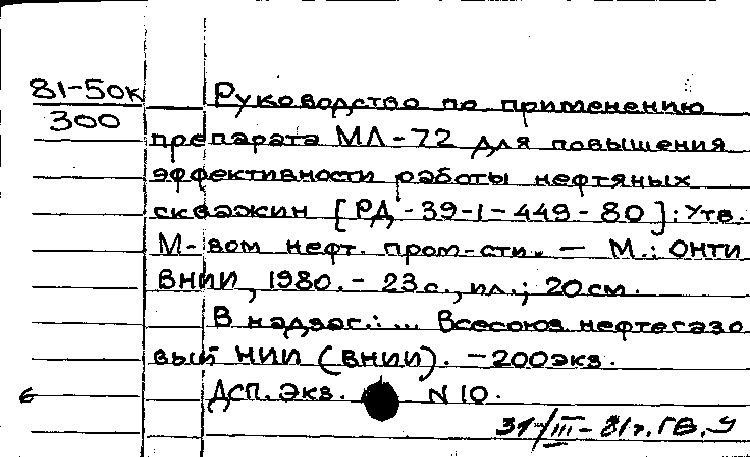 81-50к
300
Руководство по применению
препарата МЛ-72 для повышения
эффективности работы нефтяных
скважин [РД-39-1-449-80]: Утв.
М-вом нефт. пром-сти. — М.: ОНТИ
ВНИИ, 1980. - 23 с., ил.; 20 см.
В надзаг.: ... Всесоюз. нефтегазо
вый НИИ (ВНИИ). - 200 экз.
ДСП. Экз. N 10.
6
31/III-81г. ГВ. У